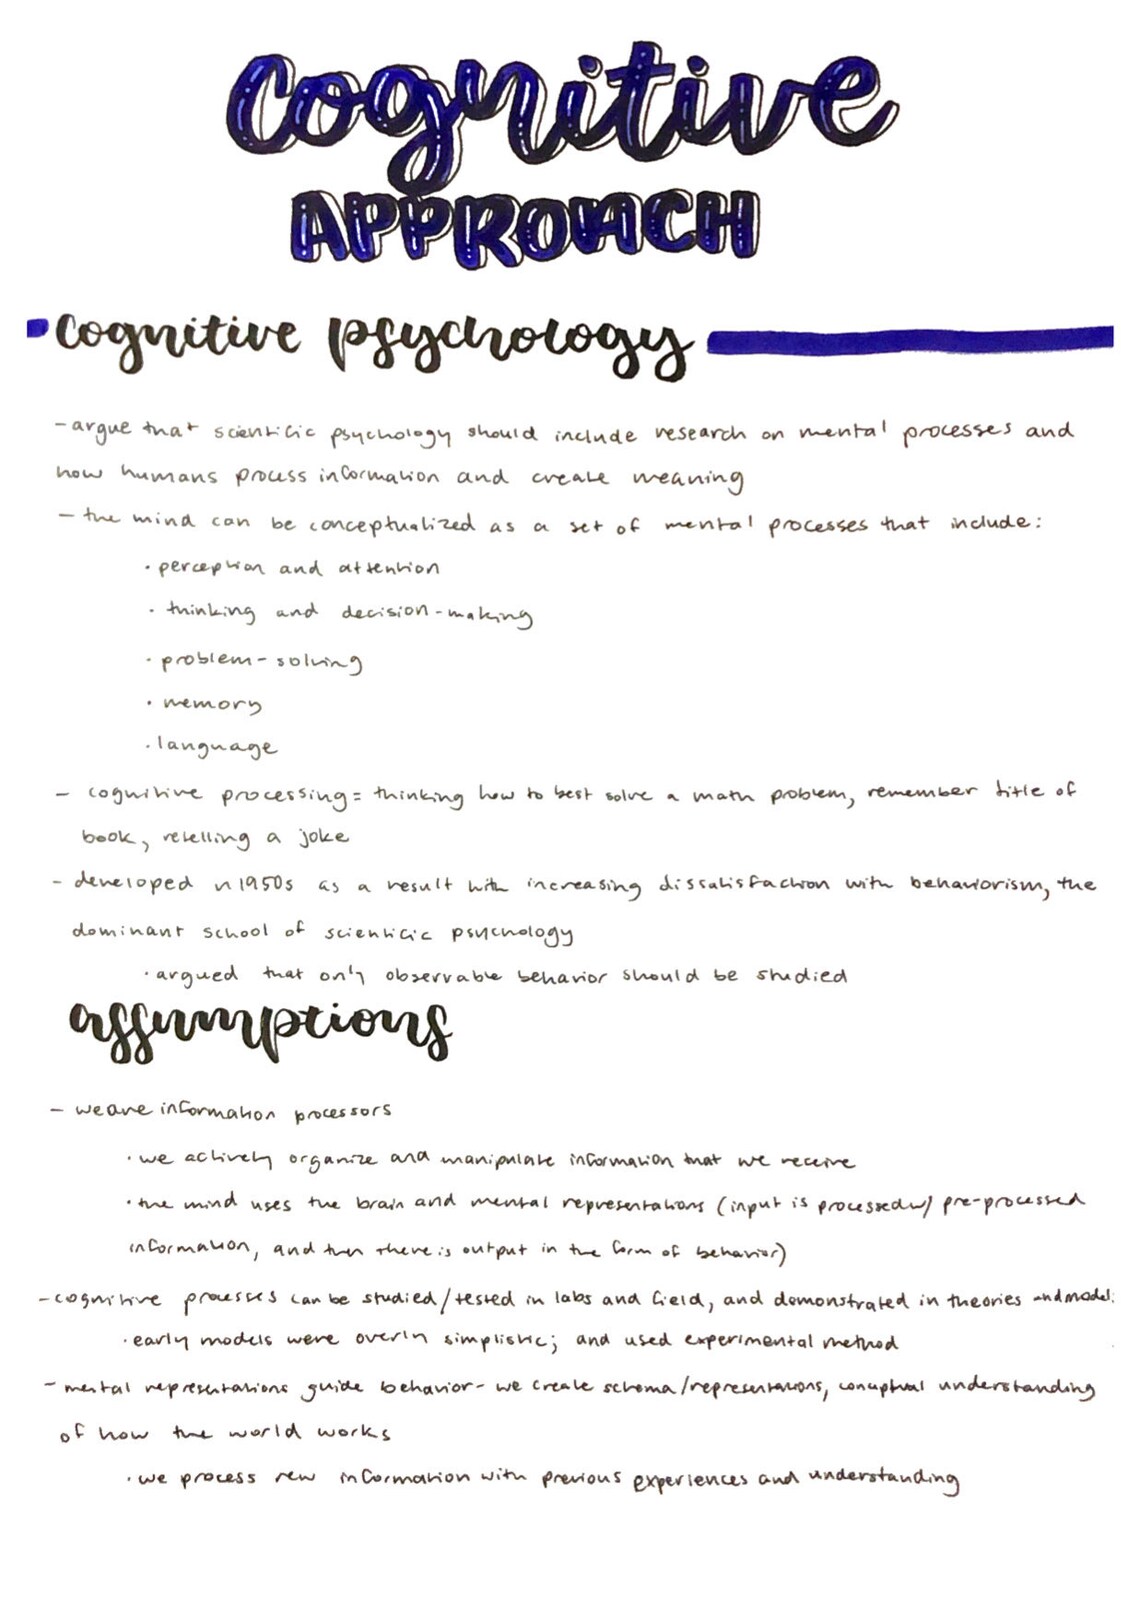 cognitive
APPROACH
cognitive psychology
- argue that scientific psychology should include research on mental processes and
how humans process information and create meaning
- the mind can be conceptualized as a set of mental processes that include:
• perception and attention
• thinking and decision-making
• problem-solving
• memory
• language
- cognitive processing = thinking how to best solve a math problem, remember title of
book, retelling a joke
- developed in 1950s as a result with increasing dissatisfaction with behaviorism, the
dominant school of scientific psychology
• argued that only observable behavior should be studied
assumptions
- we are information processors
• we actively organize and manipulate information that we receive
• the mind uses the brain and mental representations (input is processed w/ pre-processed
information, and then there is output in the form of behavior)
- cognitive processes can be studied/tested in labs and field, and demonstrated in theories and models
• early models were overly simplistic; and used experimental method
- mental representations guide behavior - we create schema/representations, conceptual understanding
of how the world works
• we process new information with previous experiences and understanding